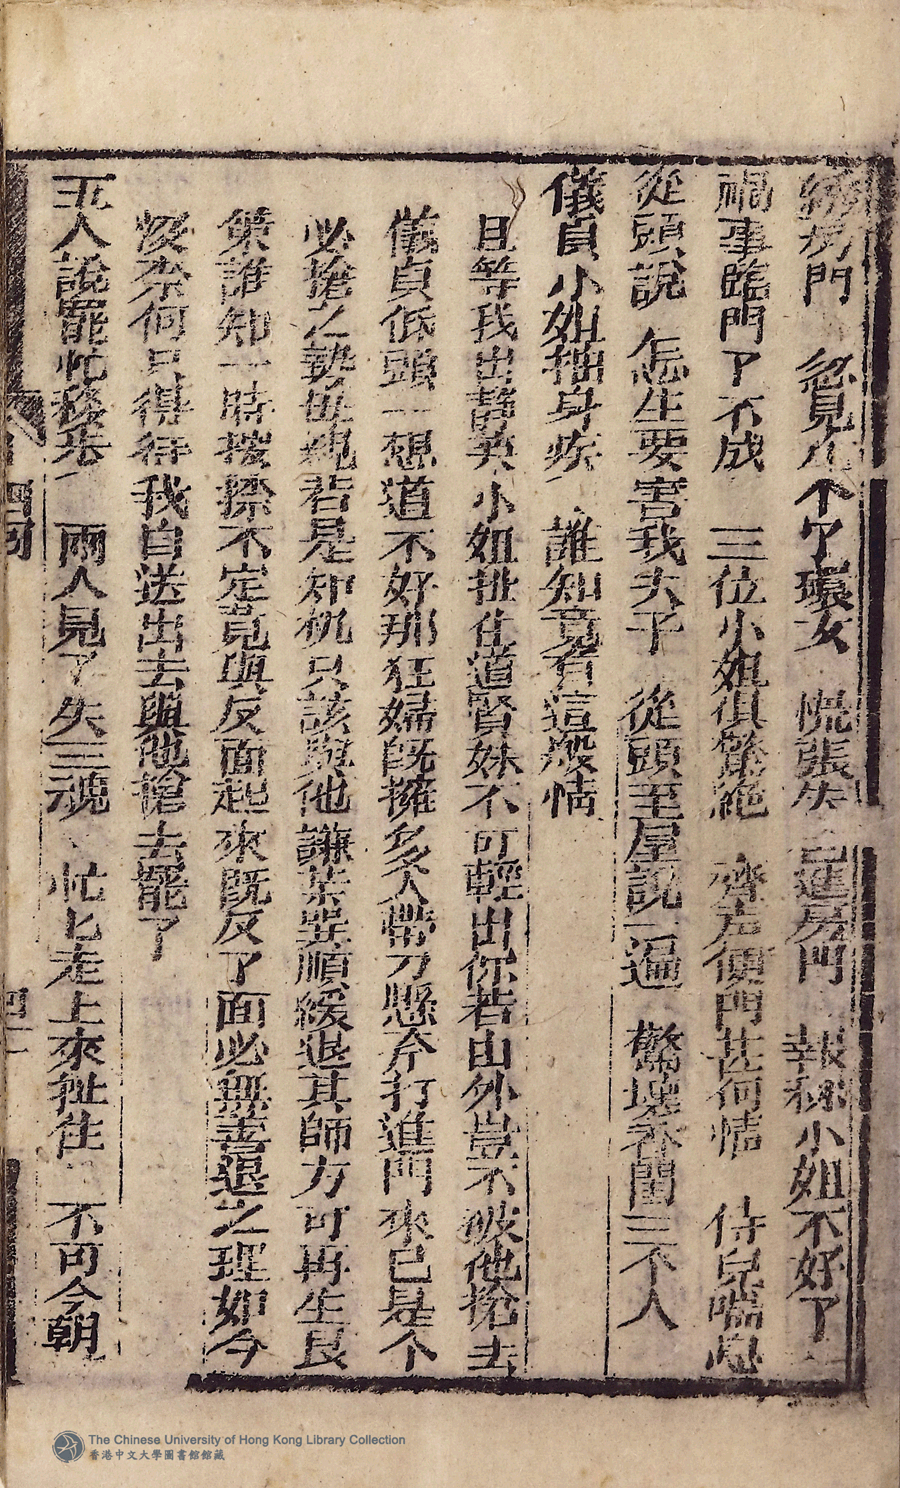 綉房門　忽見小个丫環女　慌張失色進房門　報稱小姐不好了
禍事臨門了不成　三位小姐俱驚絶　齊声便問甚何情　侍兒喘息
從頭說　怎生要害我夫子　從頭至尾說一遍　驚壞香閨三个人
儀貞小姐抽身疾　誰知竟有這般情
且等我出　小姐扯住道賢妹不可輕出你若由外豈不被他搶去
儀貞低頭一想道不好那狂婦既擁多人帶刀懸斧打進門來已是个
必搶之勢毋親若是知机只該與他謙恭巽順緩退其師方可再生良
策誰知一時按捺不定竟與反面起來既反了面必無善退之理如今
沒奈何只得待我自送出去與他搶去罷了
玉人說罷忙移步　兩人見了失三魂　忙匕走上來扯住　不可今朝
四回
四一
The Chinese University of Hong Kong Library Collection
香港中文大學圖書館館藏